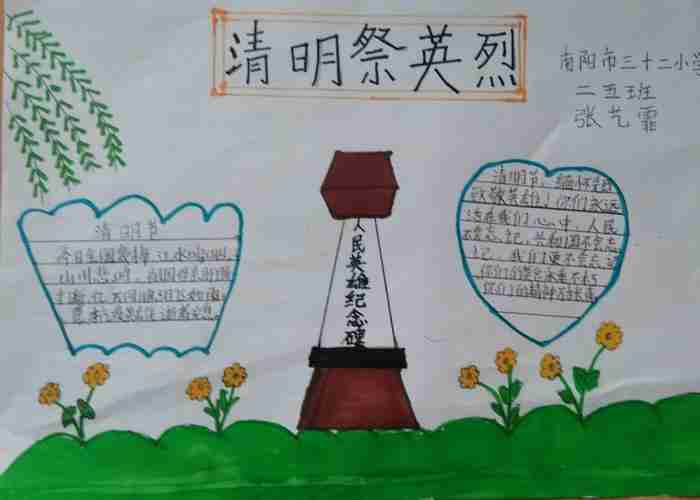 清明祭英烈
南阳市三十二小学
二五班
张艺霏
人民英雄纪念碑
清明节
今日全国哀悼 江水呜咽
山川悲鸣
清明节，缅怀
致敬英雄！你们永远
活在我们心中，人民
不会忘记，共和国不会忘
记，我们更不会忘记
你们的英名永垂不朽
你们的精神万古长